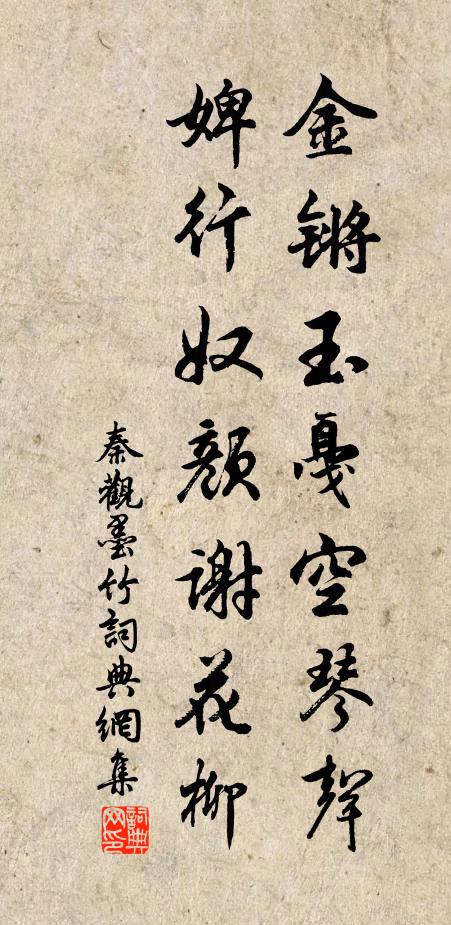 金锵玉戛空琴聲
婢行奴顏謝花柳
秦觀墨竹詞典網集
詞典网印